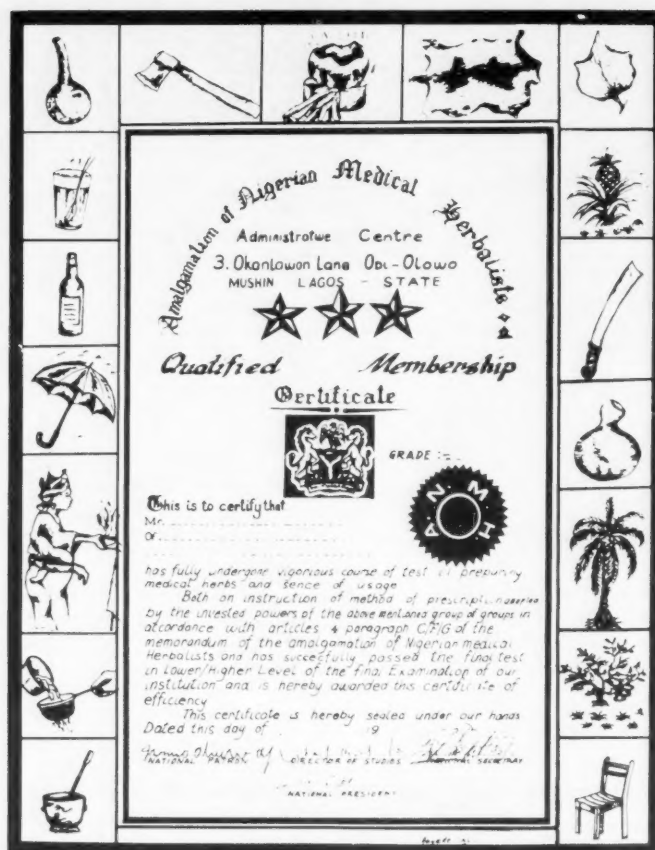 Amalgamation of Nigerian Medical Herbalists
Administrative Centre
3. Okanlawon Lane Odi-Olowo
MUSHIN LAGOS - STATE
Qualified Membership
Certificate
GRADE :-
ANMH
This is to certify that
Mr.
Of
has fully undergone vigorious course of test of preparing
medical herbs and sence of usage
Both on instruction of method of prescription
by the invested powers of the above mentioned group of groups in
accordance with articles 4 paragraph C/F/G of the
memorandum of the amalgamation of Nigerian medical
Herbalists and has succesfully passed the final test
in Lower/Higher Level of the final Examination of our
institution and is hereby awarded this certificate of
efficiency
This certificate is hereby sealed under our hands
Dated this day of 19
NATIONAL PATRON DIRECTOR OF STUDIES SECRETARY
NATIONAL PRESIDENT